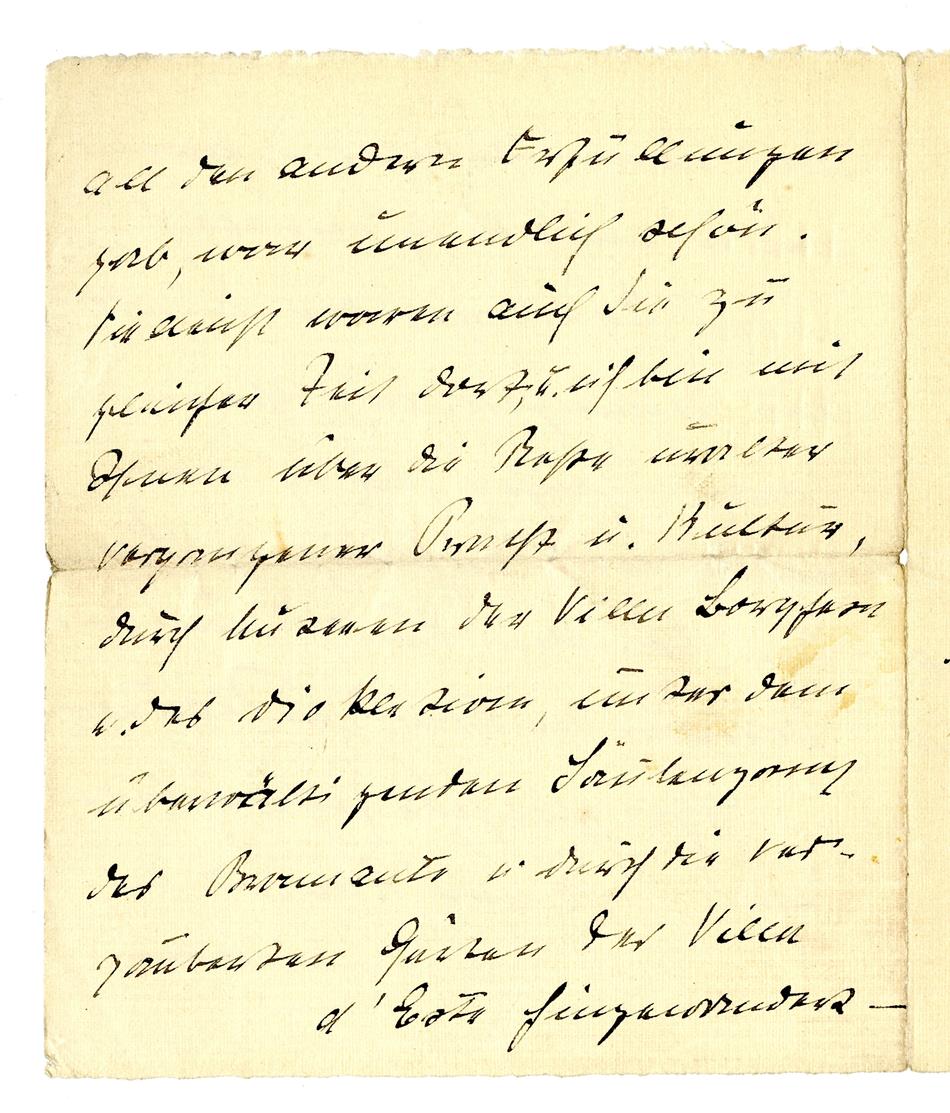 all den andern Erfüllungen
gab, war unendlich schön.
Vielleicht waren auch Sie zu
gleicher Zeit dort, u. ich bin mit
Ihnen über die Reste uralter
vergangener Pracht u. Kultur,
durch Museen der Villa Borghese
u. des Diokletian, unter dem
überwältigenden Säulengang
des Bramante u durch die ver-
zauberten Gärten der Villa
d'Este hingewandert —